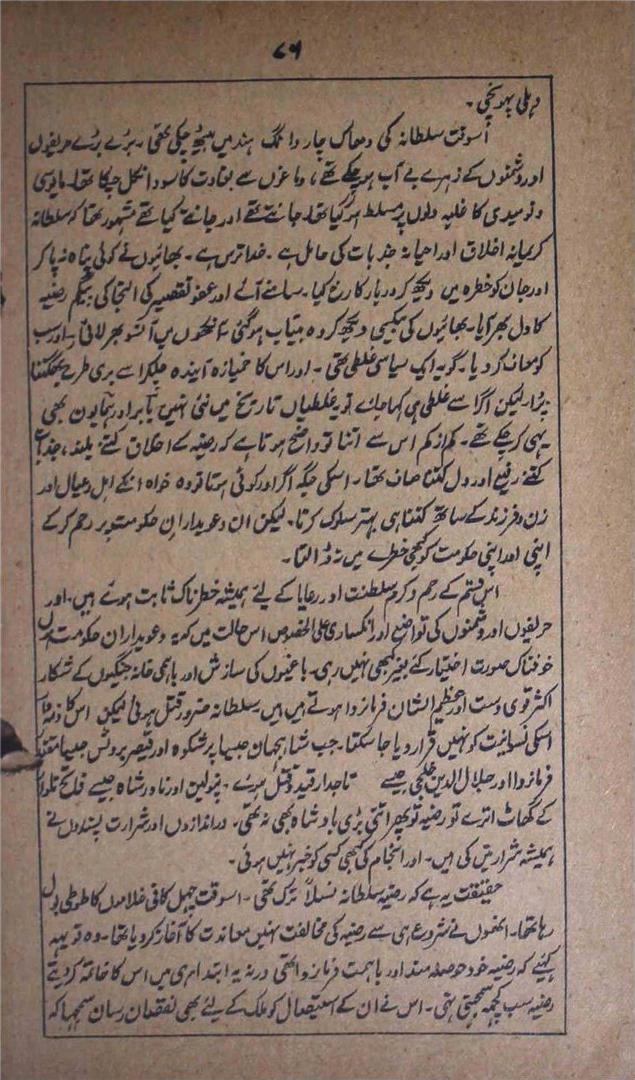 ۷۹
دہلی پہونچی۔
اُسوقت سلطانہ کی دھاک چار دانگ ہند میں بیٹھ چکی تھی۔ بڑے بڑے حریفوں
اور دشمنوں کے زہرے بے آب ہو چکے تھے، دماغوں سے بغاوت کا سودا نکل چکا تھا۔ مایوسی
و نومیدی کا غلبہ دلوں پر مسلط ہو گیا تھا۔ جانتے تھے اور جانتے کیا تھے مشہور تھا کہ سلطانہ
کریمانہ اخلاق اور احیانہ جذبات کی حامل ہے۔ خدا ترس ہے۔ بھائیوں نے کوئی پناہ نہ پا کر
اور جان کو خطرہ میں دیکھ کر دربار کا رخ کیا۔ سامنے آئے اور عفو تقصیر کی التجا کی بیگم رضیہ
کا دل بھر آیا۔ بھائیوں کی بیکسی دیکھ کر وہ بیتاب ہو گئی آنکھوں میں آنسو بھر لائی۔ اور سب
کو معاف کر دیا۔ گو یہ ایک سیاسی غلطی تھی۔ اور اس کا خمیازہ آیندہ چلکر اسے بری طرح بھگتنا
پڑا۔ لیکن اگر اسے غلطی ہی کہا جائے تو یہ غلطیاں تاریخ میں نئی نہیں بابر اور ہمایون بھی
یہی کر چکے تھے۔ کم از کم اس سے اتنا تو واضح ہوتا ہے کہ رضیہ کے اخلاق کتنے بلند، جذبات
کتنے رفیع اور دل کتنا صاف تھا۔ اسکی جگہ اگر اور کوئی ہوتا تو وہ خواہ انکے اہل و عیال اور
زن و فرزند کے ساتھ کتنا ہی بہتر سلوک کرتا۔ لیکن ان دعویداران حکومت پر رحم کر کے
اپنی اور اپنی حکومت کو کبھی خطرے میں نہ ڈالتا۔
اس قسم کے رحم و کرم سلطنت اور رعایا کے لیے ہمیشہ خطرناک ثابت ہوئے ہیں۔ اور
حریفوں اور دشمنوں کی تواضع اور انکساری علی الخصوص اس حالت میں کہ یہ دعویداران حکومت ہوں
خوفناک صورت اختیار کئے بغیر کبھی نہیں رہی۔ باغیوں کی سازش اور باہمی خانہ جنگیوں کے شکار
اکثر قوی دست اور عظیم الشان فرمانروا ہوتے ہیں ہیں۔ سلطانہ ضرور قتل ہوئی لیکن اس کا ذمہ دار
اسکی نسوانیت کو نہیں قرار دیا جا سکتا۔ جب شاہجہان جیسا پر شکوہ اور قیصر بروٹس جیسا مقتدر
فرمانروا اور جلال الدین خلجی جیسے تاجدار قید و قتل ہوئے۔ نپولین اور نادر شاہ جیسے فاتح تلوار
کے گھاٹ اترے تو رضیہ تو پھر اتنی بڑی بادشاہ بھی نہ تھی۔ دراندازوں اور شرارت پسندوں نے
ہمیشہ شرارتیں کی ہیں۔ اور انجام کی کبھی کسی کو خبر نہیں ہوئی۔
حقیقت یہ ہے کہ رضیہ سلطانہ نسلاً ترک تھی۔ اسوقت چہل گانی غلاموں کا طوطی بول
رہا تھا۔ انھوں نے شروع ہی سے رضیہ کی مخالفت نہیں معاندت کا آغاز کر دیا تھا۔ وہ تو یہہ
کہئے کہ رضیہ خود حوصلہ مند اور باہمت فرمانروا تھی ورنہ یہ ابتدا ہی میں اس کا خاتمہ کر دیتے
رضیہ سب کچھ سمجھتی تھی۔ اس نے ان کے استیصال کو ملک کے لیے بھی نقصان رسان سمجہا کہ